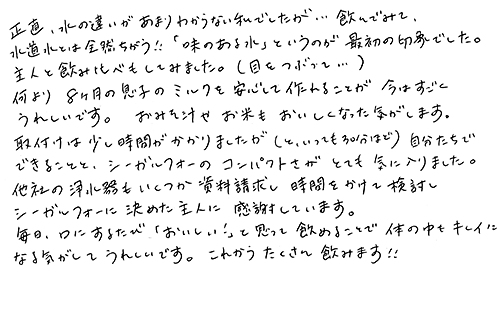 正直、水の違いがあまりわからない私でしたが… 飲んでみて、
水道水とは全然ちがう!!「味のある水」というのが 最初の印象でした。
主人と飲み比べもしてみました。(目をつぶって…)
何より 8ヶ月の息子の ミルクを 安心して 作れることが 今はすごく
うれしいです。 おみそ汁や お米も おいしくなった気がします。
取付けは少し時間がかかりましたが(と、いっても30分ほど)自分たちで
できることと、シーガルフォーの コンパクトさが とても 気に入りました。
他社の 浄水器も いくつか 資料請求し 時間をかけて 検討し
シーガルフォーに 決めた 主人に 感謝しています。
毎日、口にするたび「おいしい!」と思って 飲めることで 体の中も キレイに
なる気がして うれしいです。 これからも たくさん 飲みます!!